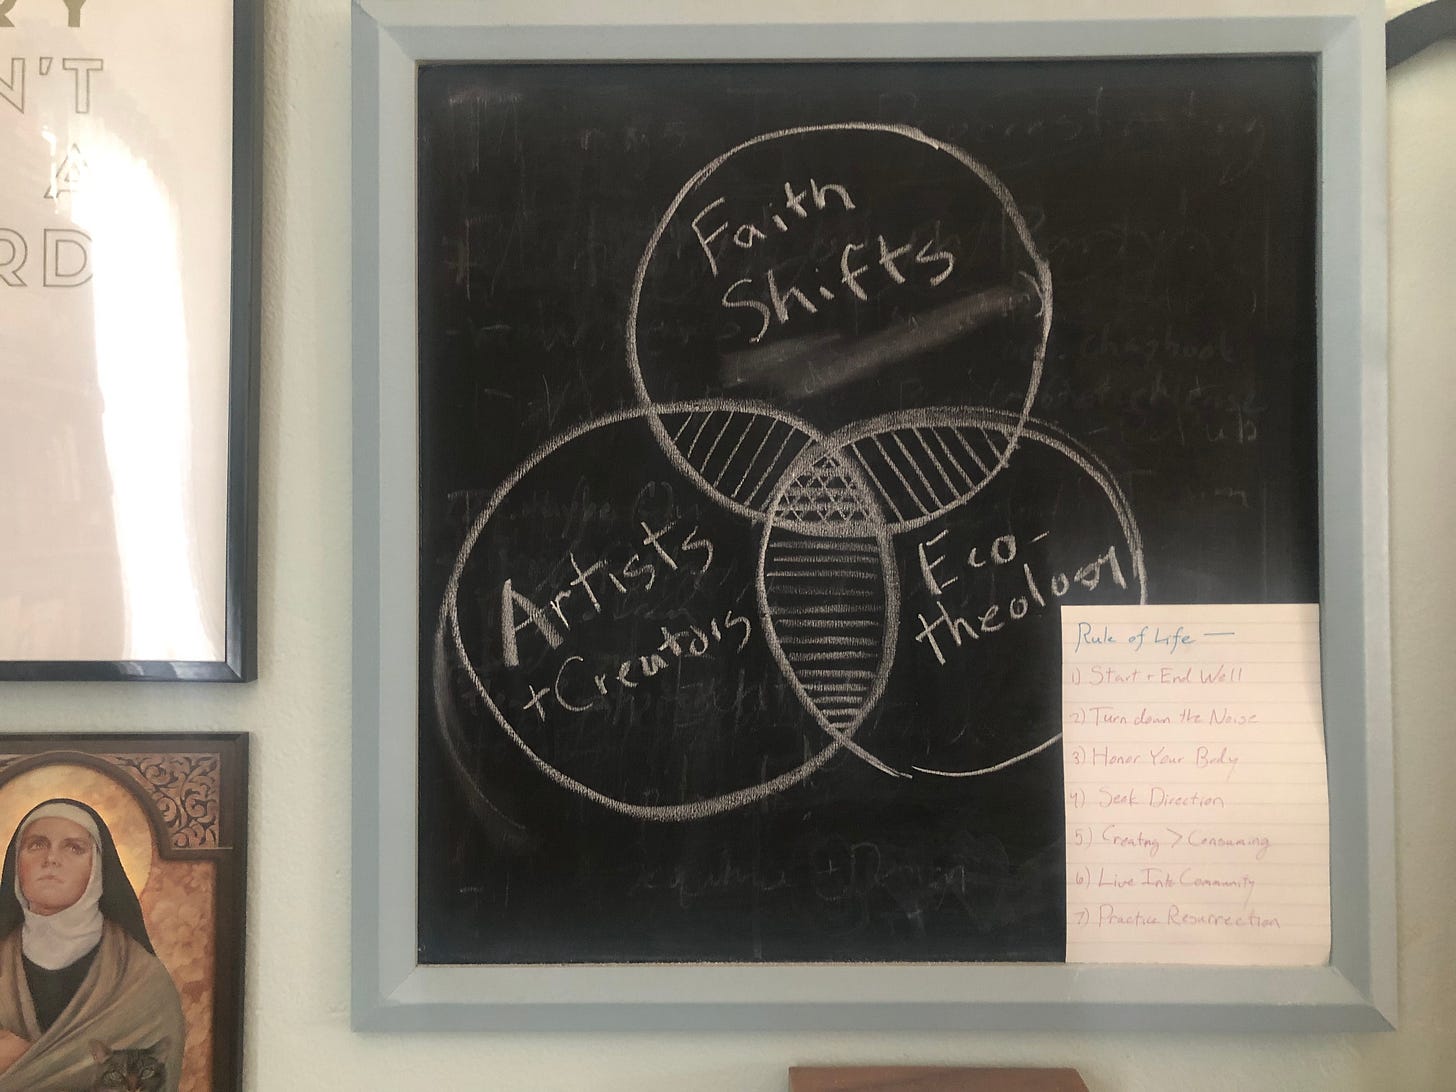 RY
N'T
A
RD
Faith
Shifts
chapbook
Artists
+ Creators
Eco-
theology
Rule of Life —
1) Start + End Well
2) Turn down the Noise
3) Honor Your Body
4) Seek Direction
5) Creating > Consuming
6) Live Into Community
7) Practice Resurrection